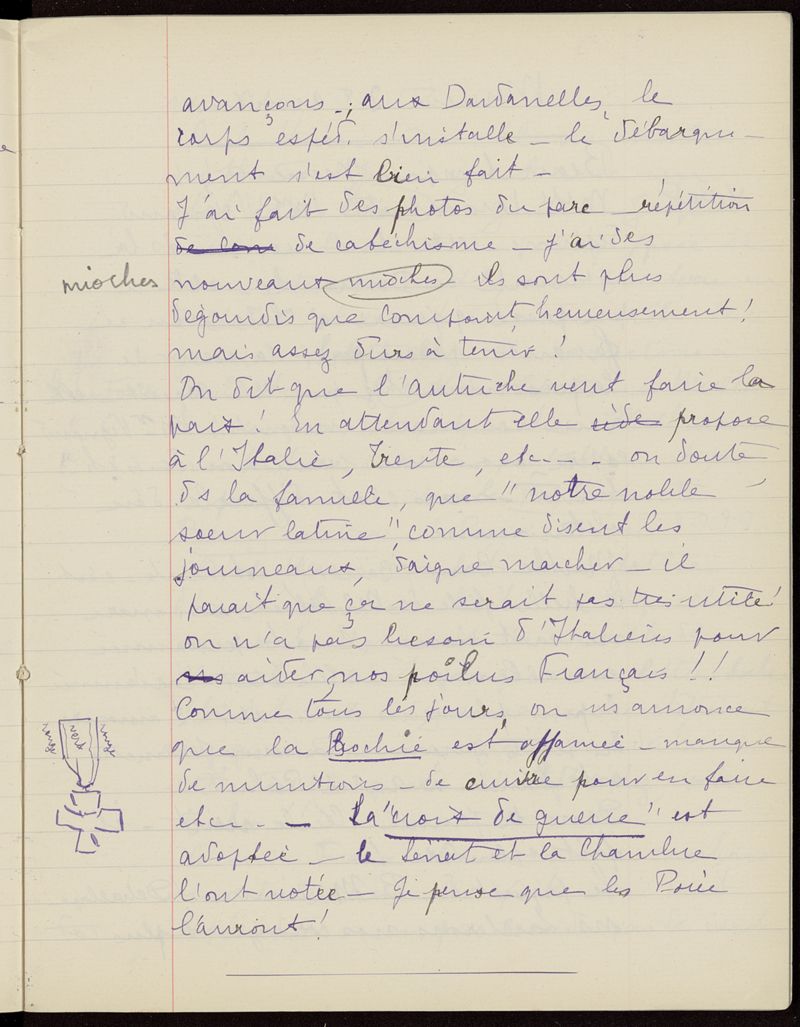 avançons - ; aux Dardanelles, le
corps espéd. s'installe - le débarque-
ment s'est bien fait -
J'ai fait des photos du parc - répétition
de com de catéchisme - j'ai des
mioches
nouveaux mioches - ils sont plus
dégourdis que Compoint, heureusement !
mais assez durs à tenir !
On dit que l'Autriche veut faire la
paix ! En attendant elle propose
à l'Italie, Trente, etc - - . on doute
ds la famille, que "notre noble
soeur latine", comme disent les
journeaux, daigne marcher - il
parait que ça ne serait pas très utile !
on n'a pas besoin d'Italiens pour
ns aider, nos poilus Français !!
Comme tous les jours, on ns annonce
que la Bochie est affamée - manque
de munitions - de cuivre pour en faire
etc - - La "croix de guerre" est
adoptée - le Sénat et la Chambre
l'ont votée - Je pense que les
l'auront !